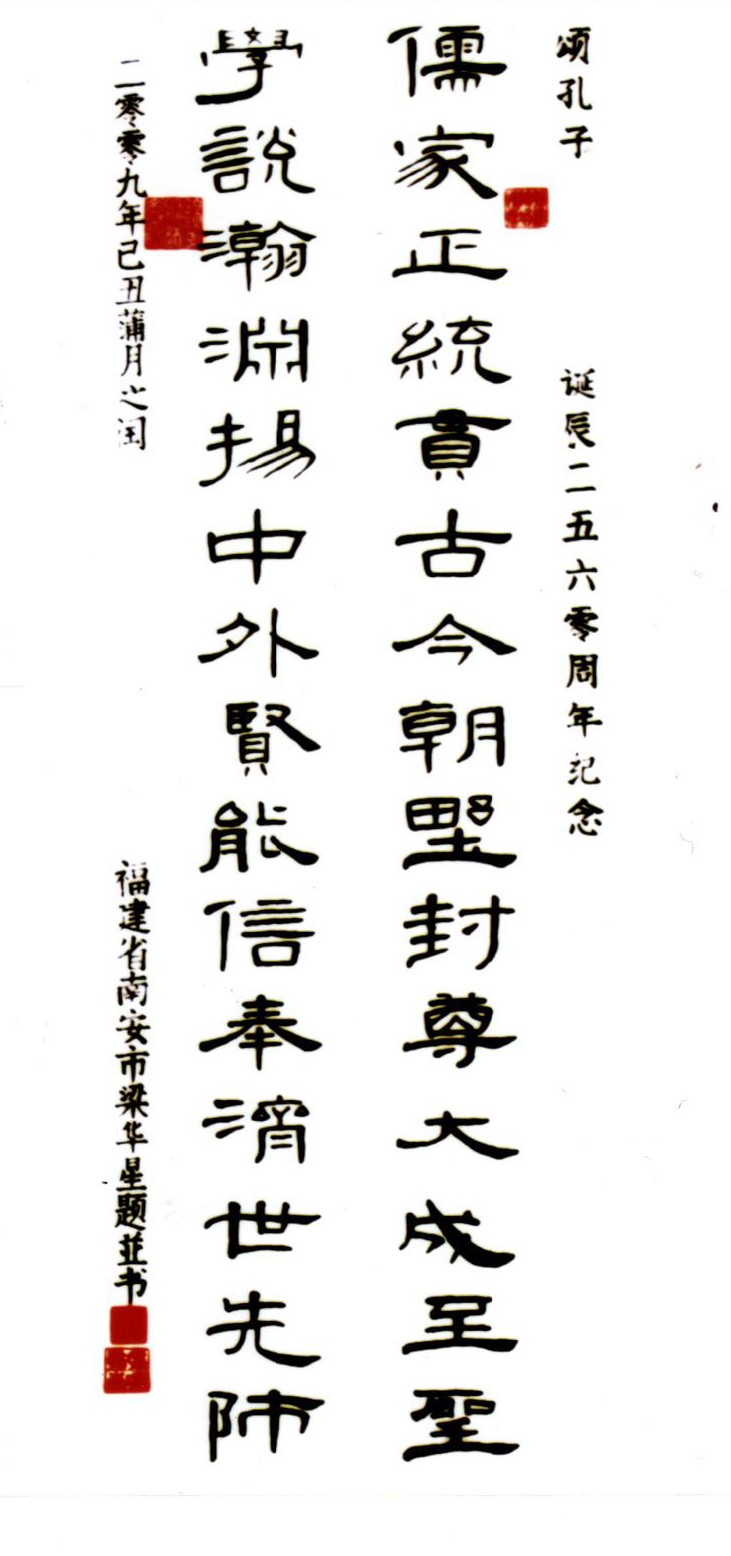 颂孔子
诞辰二五六零周年纪念
儒家正統貫古今朝野封尊大成至聖
學說瀚淵揚中外賢能信奉濟世先師
二零零九年己丑蒲月之闰
福建省南安市梁华星题並书